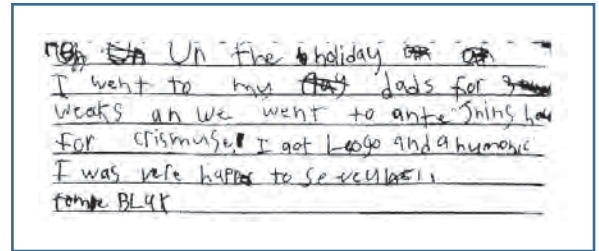 Un the holiday
I went to my dads for
weaks an we went to ante Jnins
for crismuse I got Leogo and a humonic
I was vere happe to se
BLAK